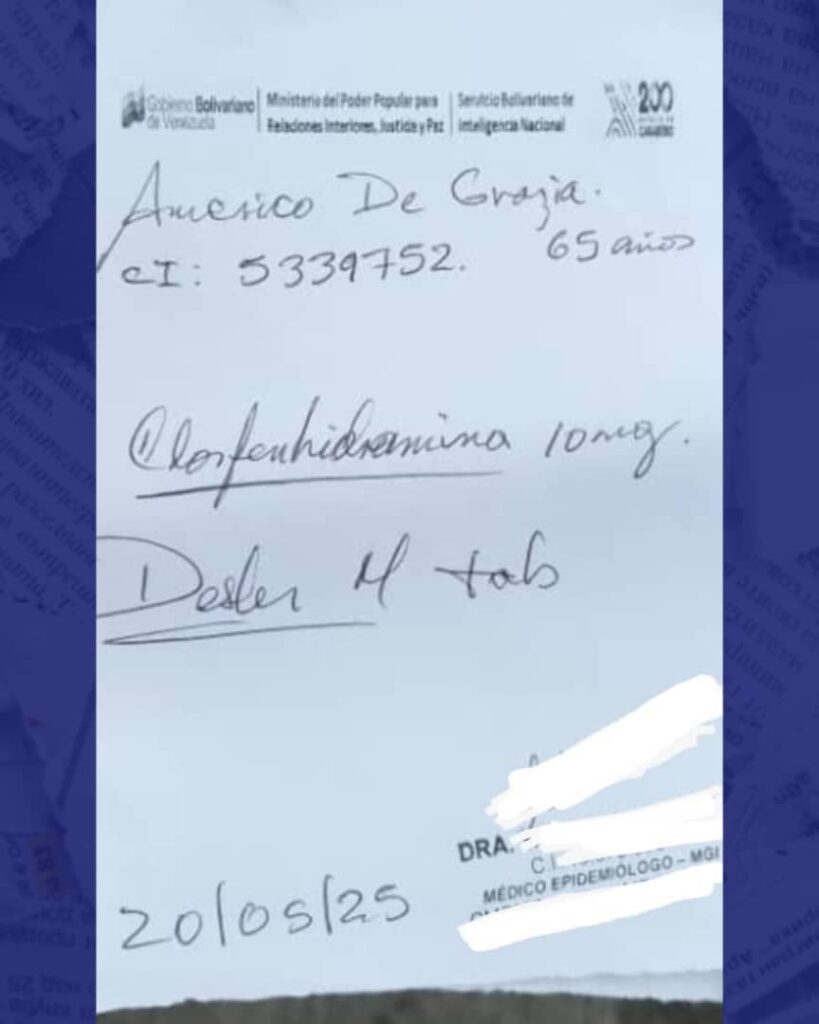 Gobierno Bolivariano de Venezuela
Ministerio del Poder Popular para Relaciones Interiores, Justicia y Paz
Servicio Bolivariano de Inteligencia Nacional
200
CARABOBO
Americo De Grazia.
CI: 5339752. 65 años
Clorfenhidramina 10mg.
Desler M tab
DRA.
MÉDICO EPIDEMIÓLOGO - MGI
20/05/25